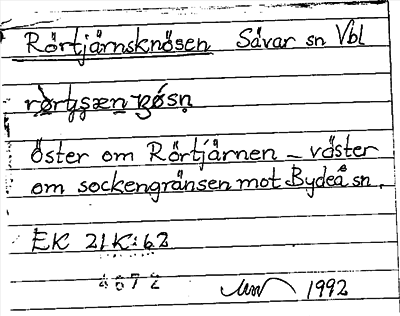 Rörtjärnsknösen Sävar sn Vbl
öster om Rörtjärnen – väster
om sockengränsen mot Bydeå sn.
EK 21K:62
4672
1992